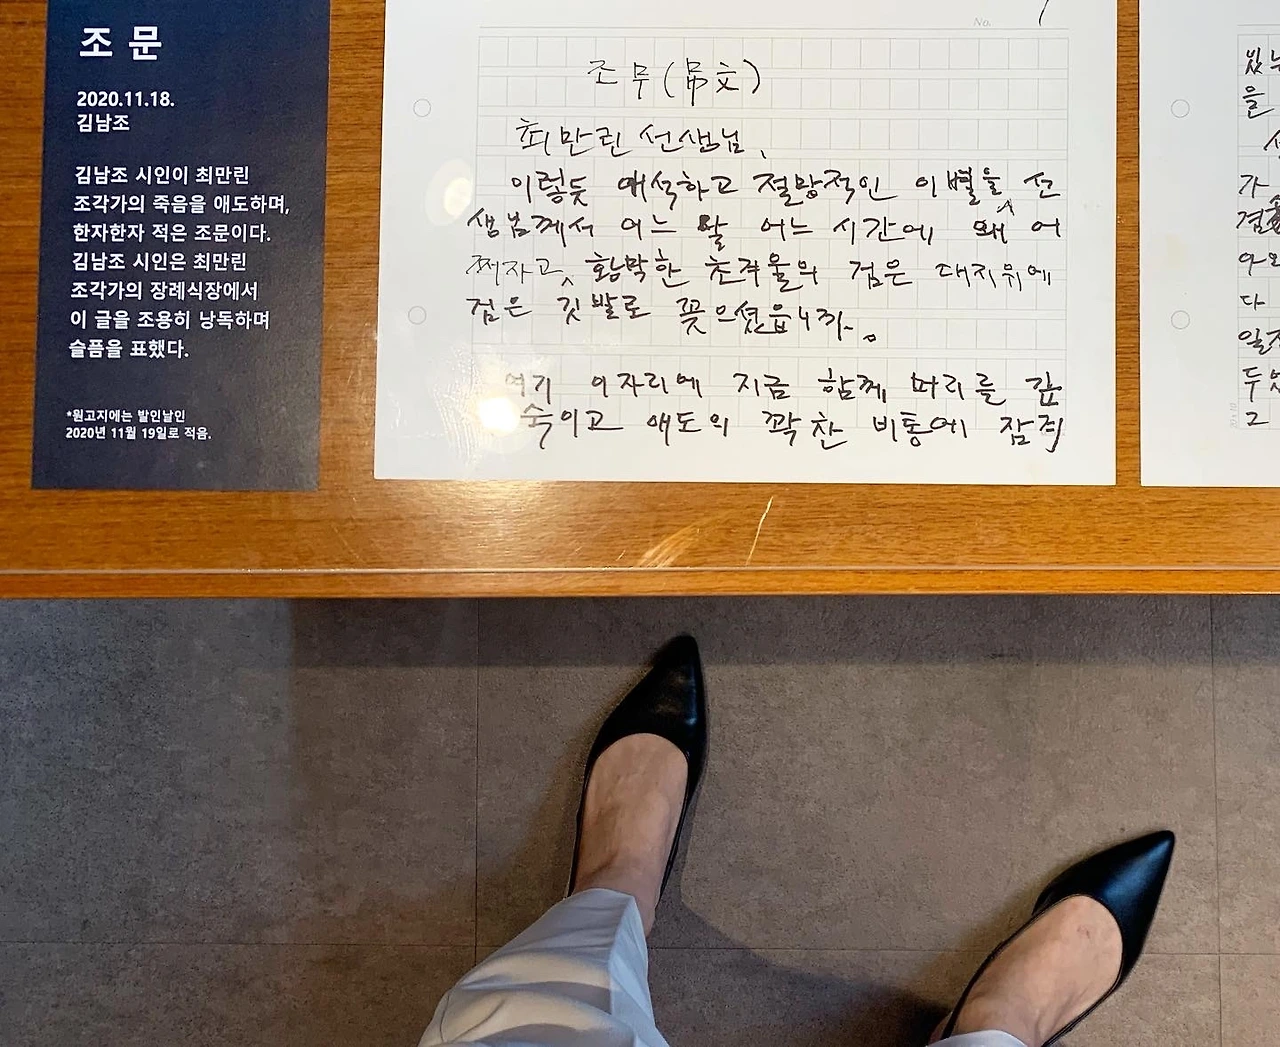 조 문
2020.11.18.
김남조
김남조 시인이 최만린
조각가의 죽음을 애도하며,
한자한자 적은 조문이다.
김남조 시인은 최만린
조각가의 장례식장에서
이 글을 조용히 낭독하며
슬픔을 표했다.
*원고지에는 발인날인
2020년 11월 19일로 적음.
No. 1
조 문 (弔文)
최만린 선생님,
이렇듯 애석하고 절망적인 이별을 선
생님께서 어느 달 어느 시간에 왜 어
쩌자고, 황막한 초겨울의 검은 대지위에
검은 깃발로 꽂으셨읍니까.
여기 이자리에 지금 함께 머리를 깊
숙이고 애도의 꽉찬 비통에 잠겨
을
가
다
두었
그